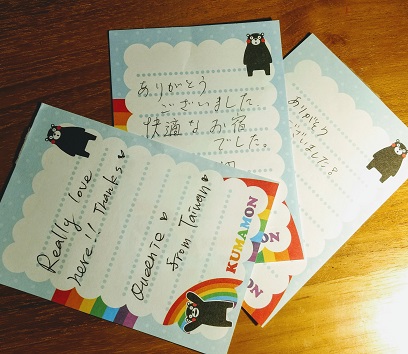 Really love
here!! Thanks♥
Queenie♥
from Taiwan♥
KUMAMON
ありがとう
ございました
快適なお宿
でした。
MON
ON
ありがとう
ざいました。